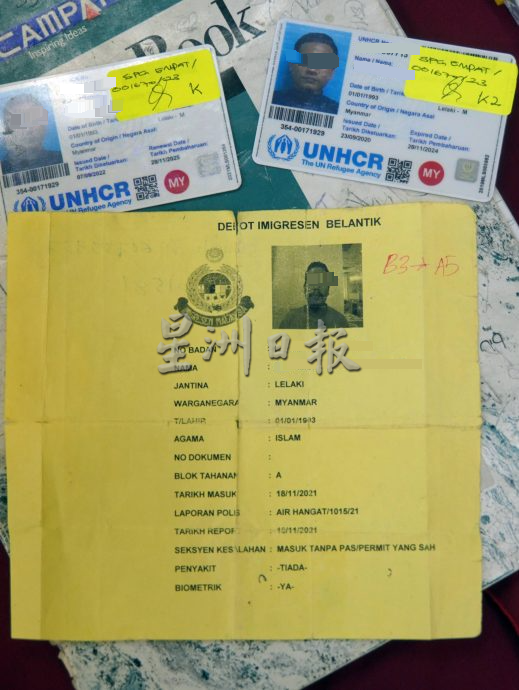 CAMPA
Inspiring Ideas
Book
SPG EMPAT/
001670/23
K
Date of Birth / Tarikh
01/01/1993
Lelaki - M
Country of Origin / Negara Asal
Myanmar
Issued Date /
Tarikh Dikeluarkan:
07/09/2022
Renewal Date /
Tarikh Pembaharuan:
28/11/2025
354-00171929
UNHCR
The UN Refugee Agency
MY
UNHCR
Name / Nama:
SPG EMPAT/
001670/23
K2
Date of Birth / Tarikh
01/01/1993
Lelaki - M
Country of Origin / Negara Asal
Myanmar
Issued Date /
Tarikh Dikeluarkan:
23/09/2020
Expired Date /
Tarikh Pembaharuan:
28/11/2024
354-00171929
UNHCR
The UN Refugee Agency
MY
DEPOT IMIGRESEN BELANTIK
B3→A5
星洲日報
NO BADAN
NAMA :
JANTINA : LELAKI
WARGANEGARA : MYANMAR
T/LAHIR : 01/01/1993
AGAMA : ISLAM
NO DOKUMEN :
BLOK TAHANAN : A
TARIKH MASUK : 18/11/2021
LAPORAN POLIS : AIR HANGAT/1015/21
TARIKH REPORT : 18/11/2021
SEKSYEN KESALAHAN : MASUK TANPA PAS/PERMIT YANG SAH
PENYAKIT : -TIADA-
BIOMETRIK : -YA-